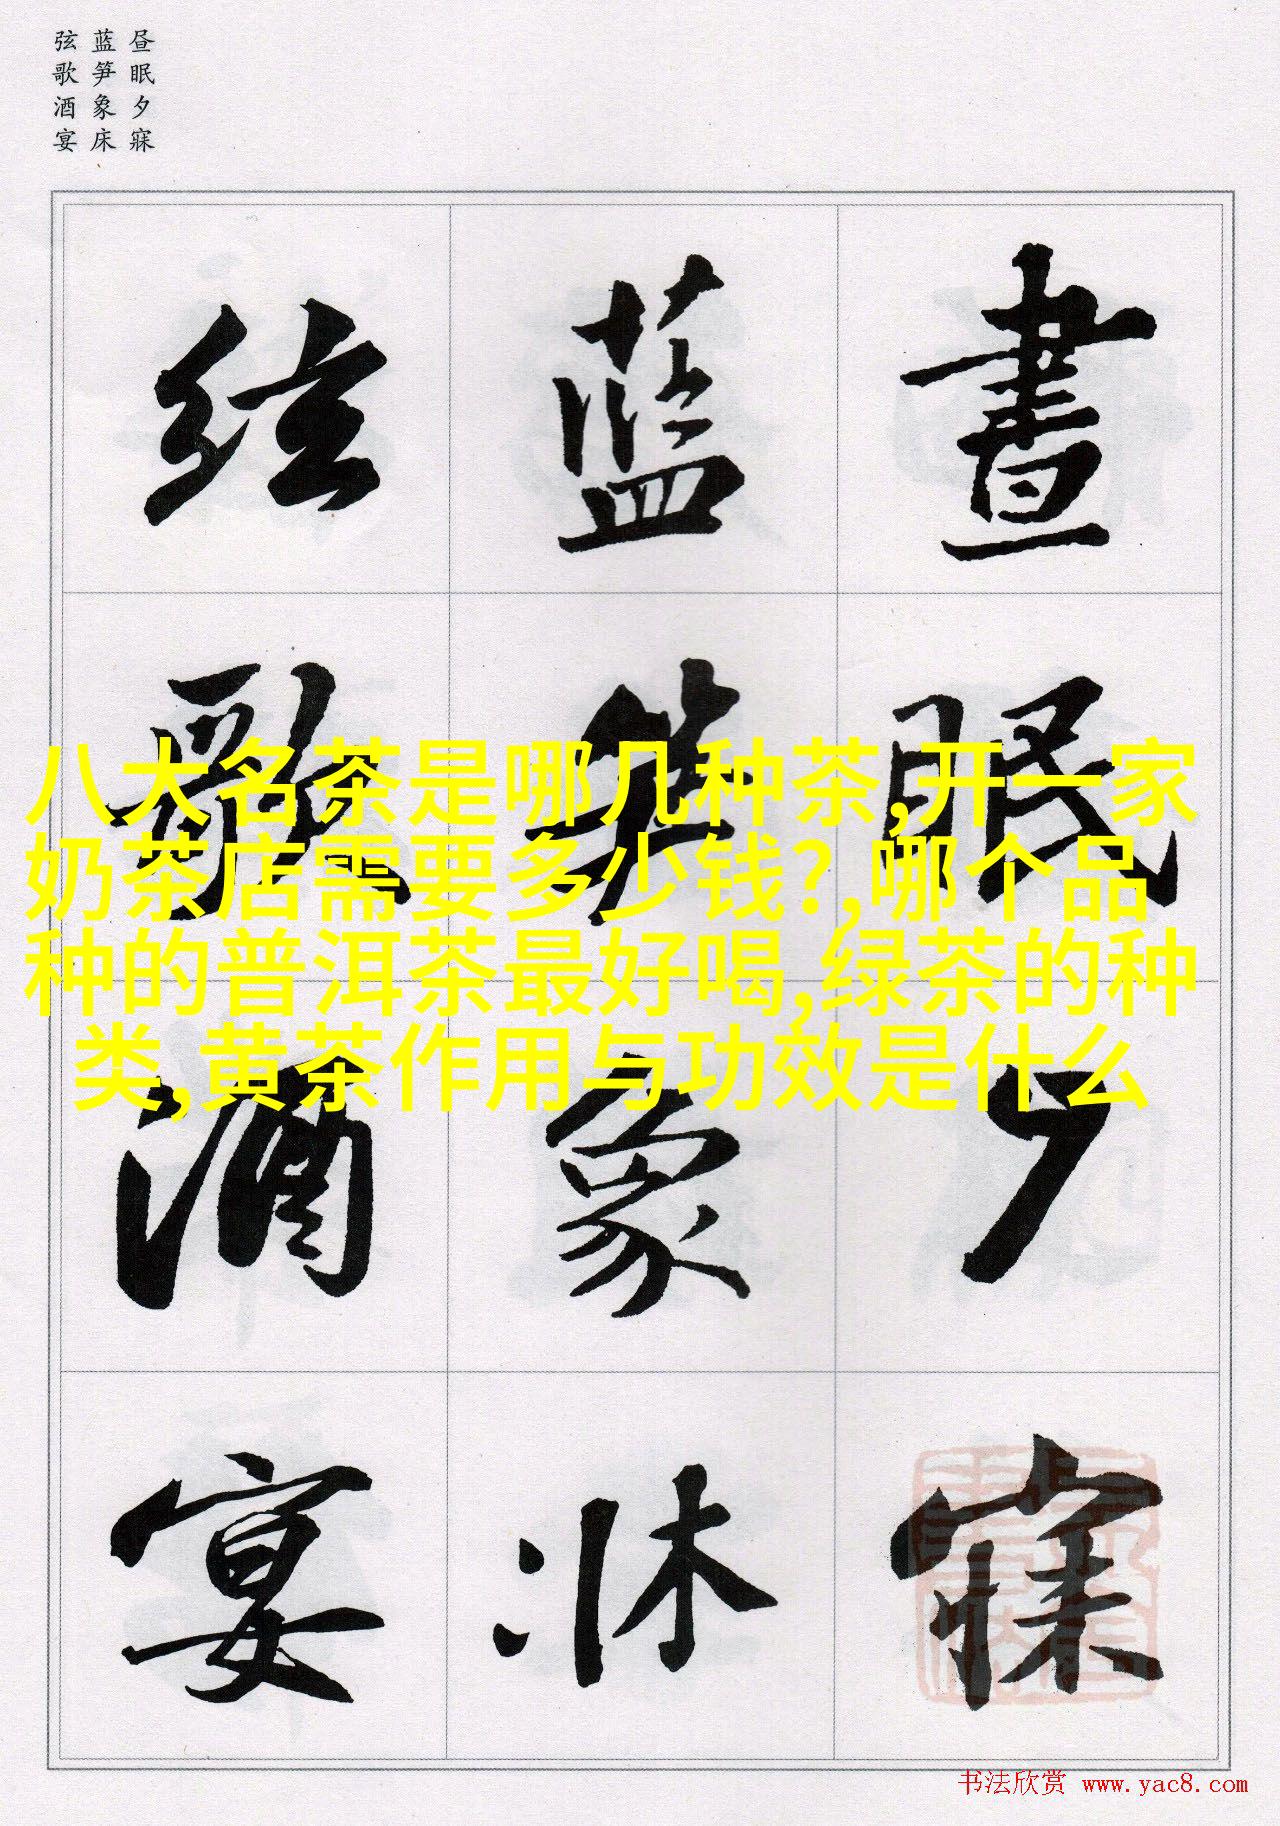 昼眠夕寐
蓝笋象床
弦歌酒宴
晝眠夕寐
蓝笋象牀
弦歌酒宴
八大名茶是哪几种茶,开一家
奶茶店需要多少钱?,哪个品
种的普洱茶最好喝,绿茶的种
类,黄茶作用与功效是什么
书法欣赏 www.yac8.com